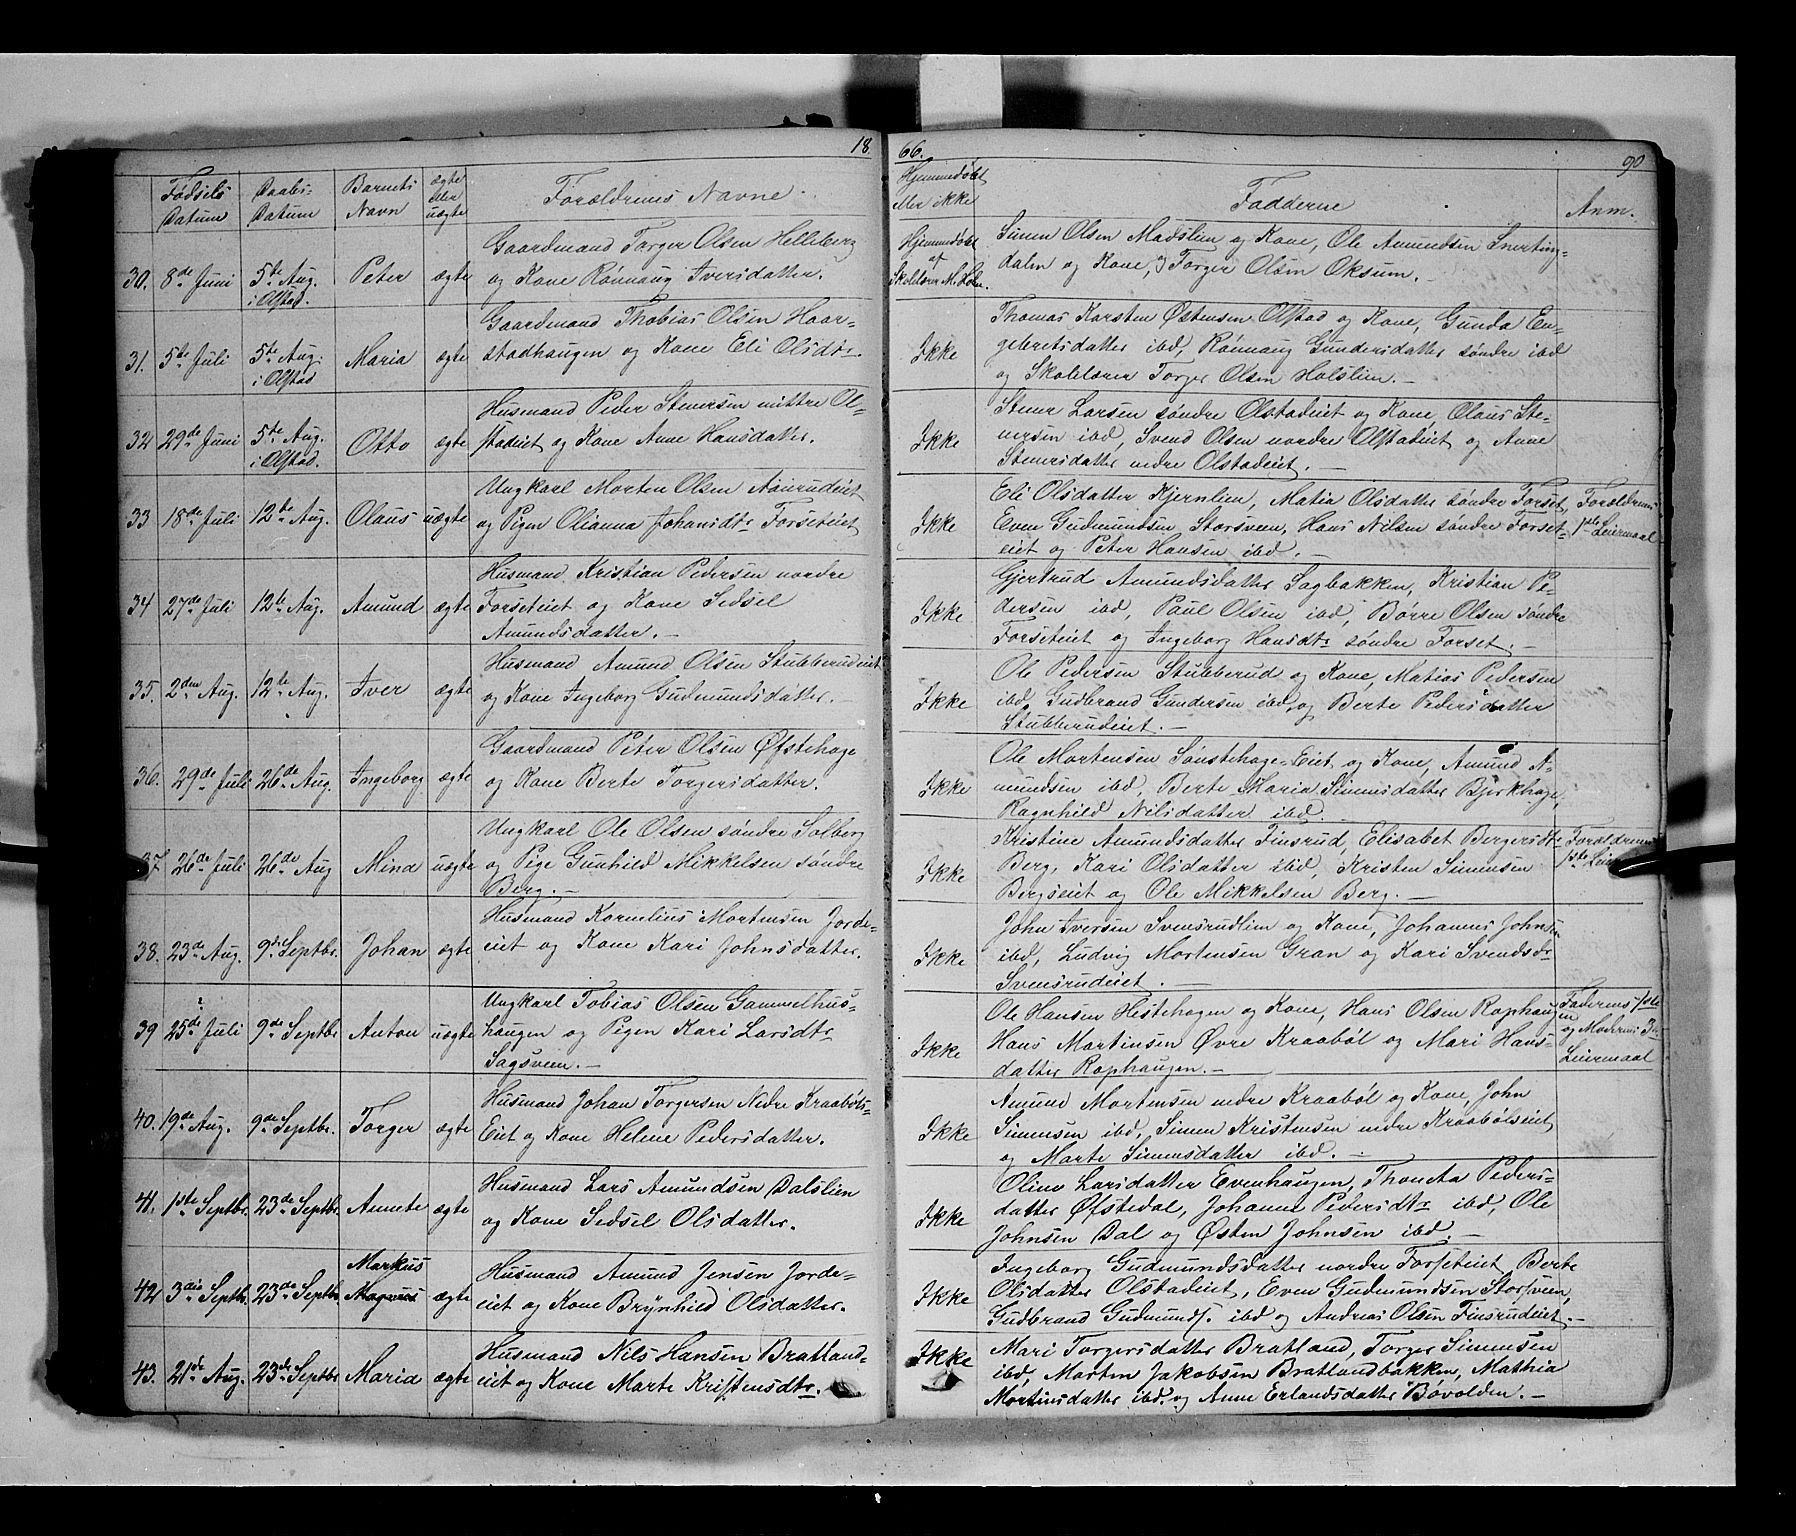 18
66.
90
Fødsels Datum
Daabs- Datum
Barnets Navn
ægte eller uægte
Forældrenes Navne.
Hjemmedøbt eller ikke
Fadderne
Anm.
30. 8de Juni 5te Aug. i Olstad. Peter ægte
Gaardmand Torger Olsen Helleberg
og Kone Rønnaug Iversdatter.
Hjemmedøbt af Skolelærer M.
Simen Olsen Madslien og Kone, Ole Amundsen Snerting-
dalen og Kone, og Torger Olsen Oksum.
31. 5te Juli 5te Aug. i Olstad Maria ægte
Gaardmand Thobias Olsen Haar-
stadhaugen og Kone Eli Olsdtr.
Ikke
Thomas Karsten Østensen Olstad og Kone, Gunda En-
gebretsdatter ibd, Rønnaug Gundersdatter søndre ibd
og Skolelærer Torger Olsen Holslien. —
32 29de Juni 5te Aug. i Olstad. Otto ægte
Husmand Peder Stenersen mittre Ol-
stadeiet og Kone Anne Hansdatter.
Ikke
Stener Larsen søndre Olstadeiet og Kone, Olaus Ste-
nersen ibd, Svend Olsen nordre Olstadeiet og Anne
Stenersdatter nedre Olstadeiet. —
33 18de Juli 12te Aug. Olaus uægte
Ungkarl Morten Olsen
og Pigen Olianna Johansdtr Forseteiet
Ikke
Eli Olsdatter Kjernlien, Matia Olsdatter søndre Forset,
Even Gudmundsen Storsveen, Hans Nilsen søndre Forset-
eiet og Peter Hansen ibd. —
Forældrenes
1ste Leiermaal
34 27de Juli 12te Aug. Amund ægte
Husmand Kristian Pedersen nordre
Forseteiet og Kone Sidsel
Amundsdatter. —
Ikke
Gjertrud Amundsdatter Sagbakken, Kristian Pe-
dersen ibd, Paul Olsen ibd, Børre Olsen søndre
Forseteiet og Ingeborg Hansdtr søndre Forset. —
35. 2den Aug. 12te Aug. Iver ægte
Husmand Amund Olsen Stubberudeiet
og Kone Ingeborg Gudmundsdatter. —
Ikke
Ole Pedersen Stubberud og Kone, Matias Pedersen
ibd, Gudbrand Gundersen ibd, og Berte Pedersdatter
Stubberudeiet. —
36. 29de Juli 26de Aug. Ingeborg ægte
Gaardmand Peter Olsen Øfstehage
og Kone Berte Torgersdatter.
Ikke
Ole Mortensen Sønstehage-Eiet og Kone, Amund A-
mundsen ibd, Berte Maria Simensdatter Bjørkhage,
Ragnhild Nilsdatter ibd.
37 26de Juli 26de Aug Mina uægte
Ungkarl Ole Olsen søndre Solberg
og Pige Gunhild Mikkelsen søndre
Berg. —
Ikke
Kristine Amundsdatter Finsrud, Elisabet Bergersdtr
Berg, Kari Olsdatter ibd, Kristen Simensen
Bergseiet og Ole Mikkelsen Berg. —
Forældrenes
1ste
38. 23de Aug. 9de Septbr. Johan ægte
Husmand Kornelius Mortensen Jorde-
eiet og Kone Kari Johnsdatter.
Ikke
John Iversen Svensrudlien og Kone, Johannes Johnsen
ibd, Ludvig Mortensen Gran og Kari Svendsdr
Svensrudeiet. —
39 25de Juli 9de Septbr Anton uægte
Ungkarl Tobias Olsen Gammelhus-
haugen og Pigen Kari Larsdtr
Sagsveen. —
Ikke
Ole Hansen Hestehagen og Kone, Hans Olsen Raphaugen
Hans Martinsen Øvre Kraabøl og Mari Hans-
datter Raphaugen. —
Faderens 1ste
og Moderens 3die
Leiermaal
40. 19de Aug. 9de Septbr. Torger ægte
Husmand Johan Torgersen Nedre Kraabøls-
Eiet og Kone Helene Pedersdatter.
Ikke
Amund Mortensen nedre Kraabøl og Kone, John
Simensen ibd, Simen Kristensen nedre Kraabølseiet
og Marte Simensdatter ibd. —
41. 1ste Septbr. 23de Septbr. Annete ægte
Husmand Lars Amundsen Dalslien
og Kone Sidsel Olsdatter.
Ikke
Oline Larsdatter Evenhaugen, Thoneta Peders-
datter Øfstedal, Johanne Pedersdtr ibd, Ole
Johnsen Dal og Østen Johnsen ibd. —
42 3die Septbr. 23de Septbr Markus Magnus ægte
Husmand Amund Jensen Jorde-
eiet og Kone Brynhild Olsdatter.
Ikke
Ingeborg Gudmundsdatter nordre Forseteiet, Berte
Olsdatter Olstadeiet, Even Gudmundsen Storsveen,
Gudbrand Gudmunds. ibd og Andreas Olsen Finsrudeiet. —
43. 21de Aug. 23de Septbr Maria ægte
Husmand Nils Hansen Bratland-
eiet og Kone Marte Kristensdtr.
Ikke
Mari Torgersdatter Bratland, Torger Simensen
ibd, Morten Jakobsen Bratlandbakken, Mathia
Mortensdatter ibd. og Anne Erlandsdatter Bøvolden. —